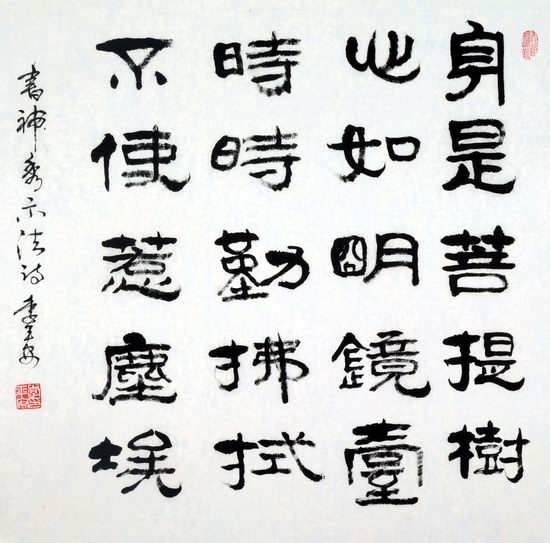 身是菩提樹
心如明鏡臺
時時勤拂拭
不使惹塵埃
書神秀示法詩